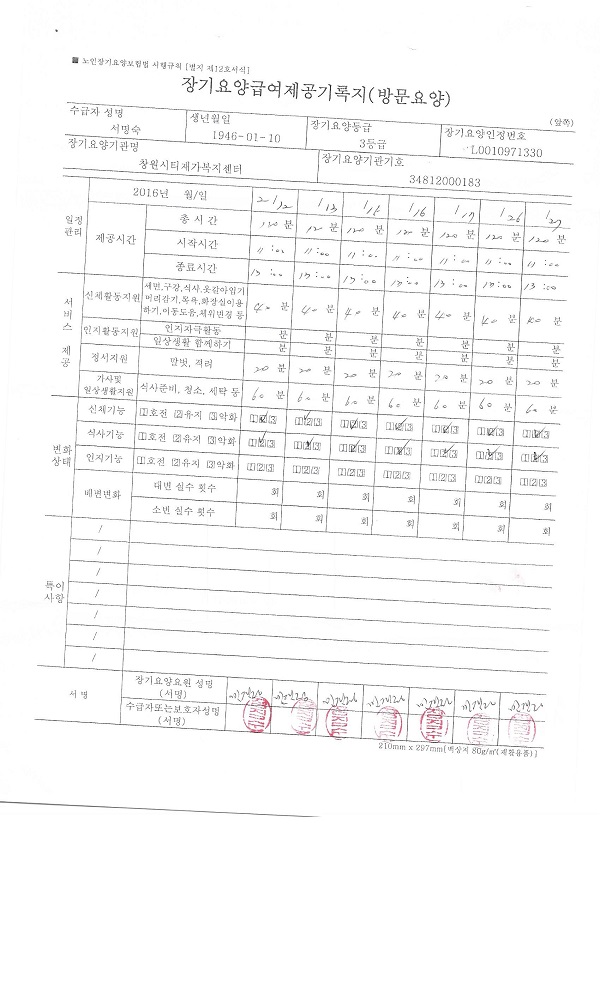 ■ 노인장기요양보험법 시행규칙 [별지 제12호서식]
장기요양급여제공기록지(방문요양)
(앞쪽)
수급자 성명 생년월일 장기요양등급 장기요양인정번호
서명숙 1946-01-10 3등급 L0010971330
장기요양기관명 장기요양기관기호
창원시티재가복지센터 34812000183
2016년 월/일 2/12 /13 /15 /16 /17 /26 /27
일정관리 제공시간
총 시 간 120 분 120 분 120 분 120 분 120 분 120 분 120 분
시작시간 11:00 11:00 11:00 11:00 11:00 11:00 11:00
종료시간 13:00 13:00 13:00 13:00 13:00 13:00 13:00
서비스 제공
신체활동지원 세면,구강,식사,옷갈아입기
머리감기,목욕,화장실이용
하기,이동도움,체위변경 등
40 분 40 분 40 분 40 분 40 분 40 분 40 분
인지활동지원 인지자극활동 분 분 분 분 분 분 분
일상생활 함께하기 분 분 분 분 분 분 분
정서지원 말벗, 격려 20 분 20 분 20 분 20 분 20 분 20 분 20 분
가사및
일상생활지원 식사준비, 청소, 세탁 등 60 분 60 분 60 분 60 분 60 분 60 분 60 분
변화상태
신체기능 ①호전 ②유지 ③악화 ①②③ ①②③ ①②③ ①②③ ①②③ ①②③ ①②③
식사기능 ①호전 ②유지 ③악화 ①②③ ①②③ ①②③ ①②③ ①②③ ①②③ ①②③
인지기능 ①호전 ②유지 ③악화 ①②③ ①②③ ①②③ ①②③ ①②③ ①②③ ①②③
배변변화 대변 실수 횟수 회 회 회 회 회 회 회
소변 실수 횟수 회 회 회 회 회 회 회
특이사항
/
/
/
/
/
/
/
서 명
장기요양요원 성명
(서명)
수급자또는보호자성명
(서명)
210mm x 297mm[백상지 80g/㎡(재활용품)]